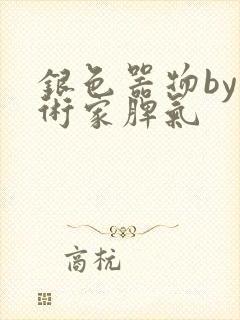 銀色器物by
術家脾氣
高杭